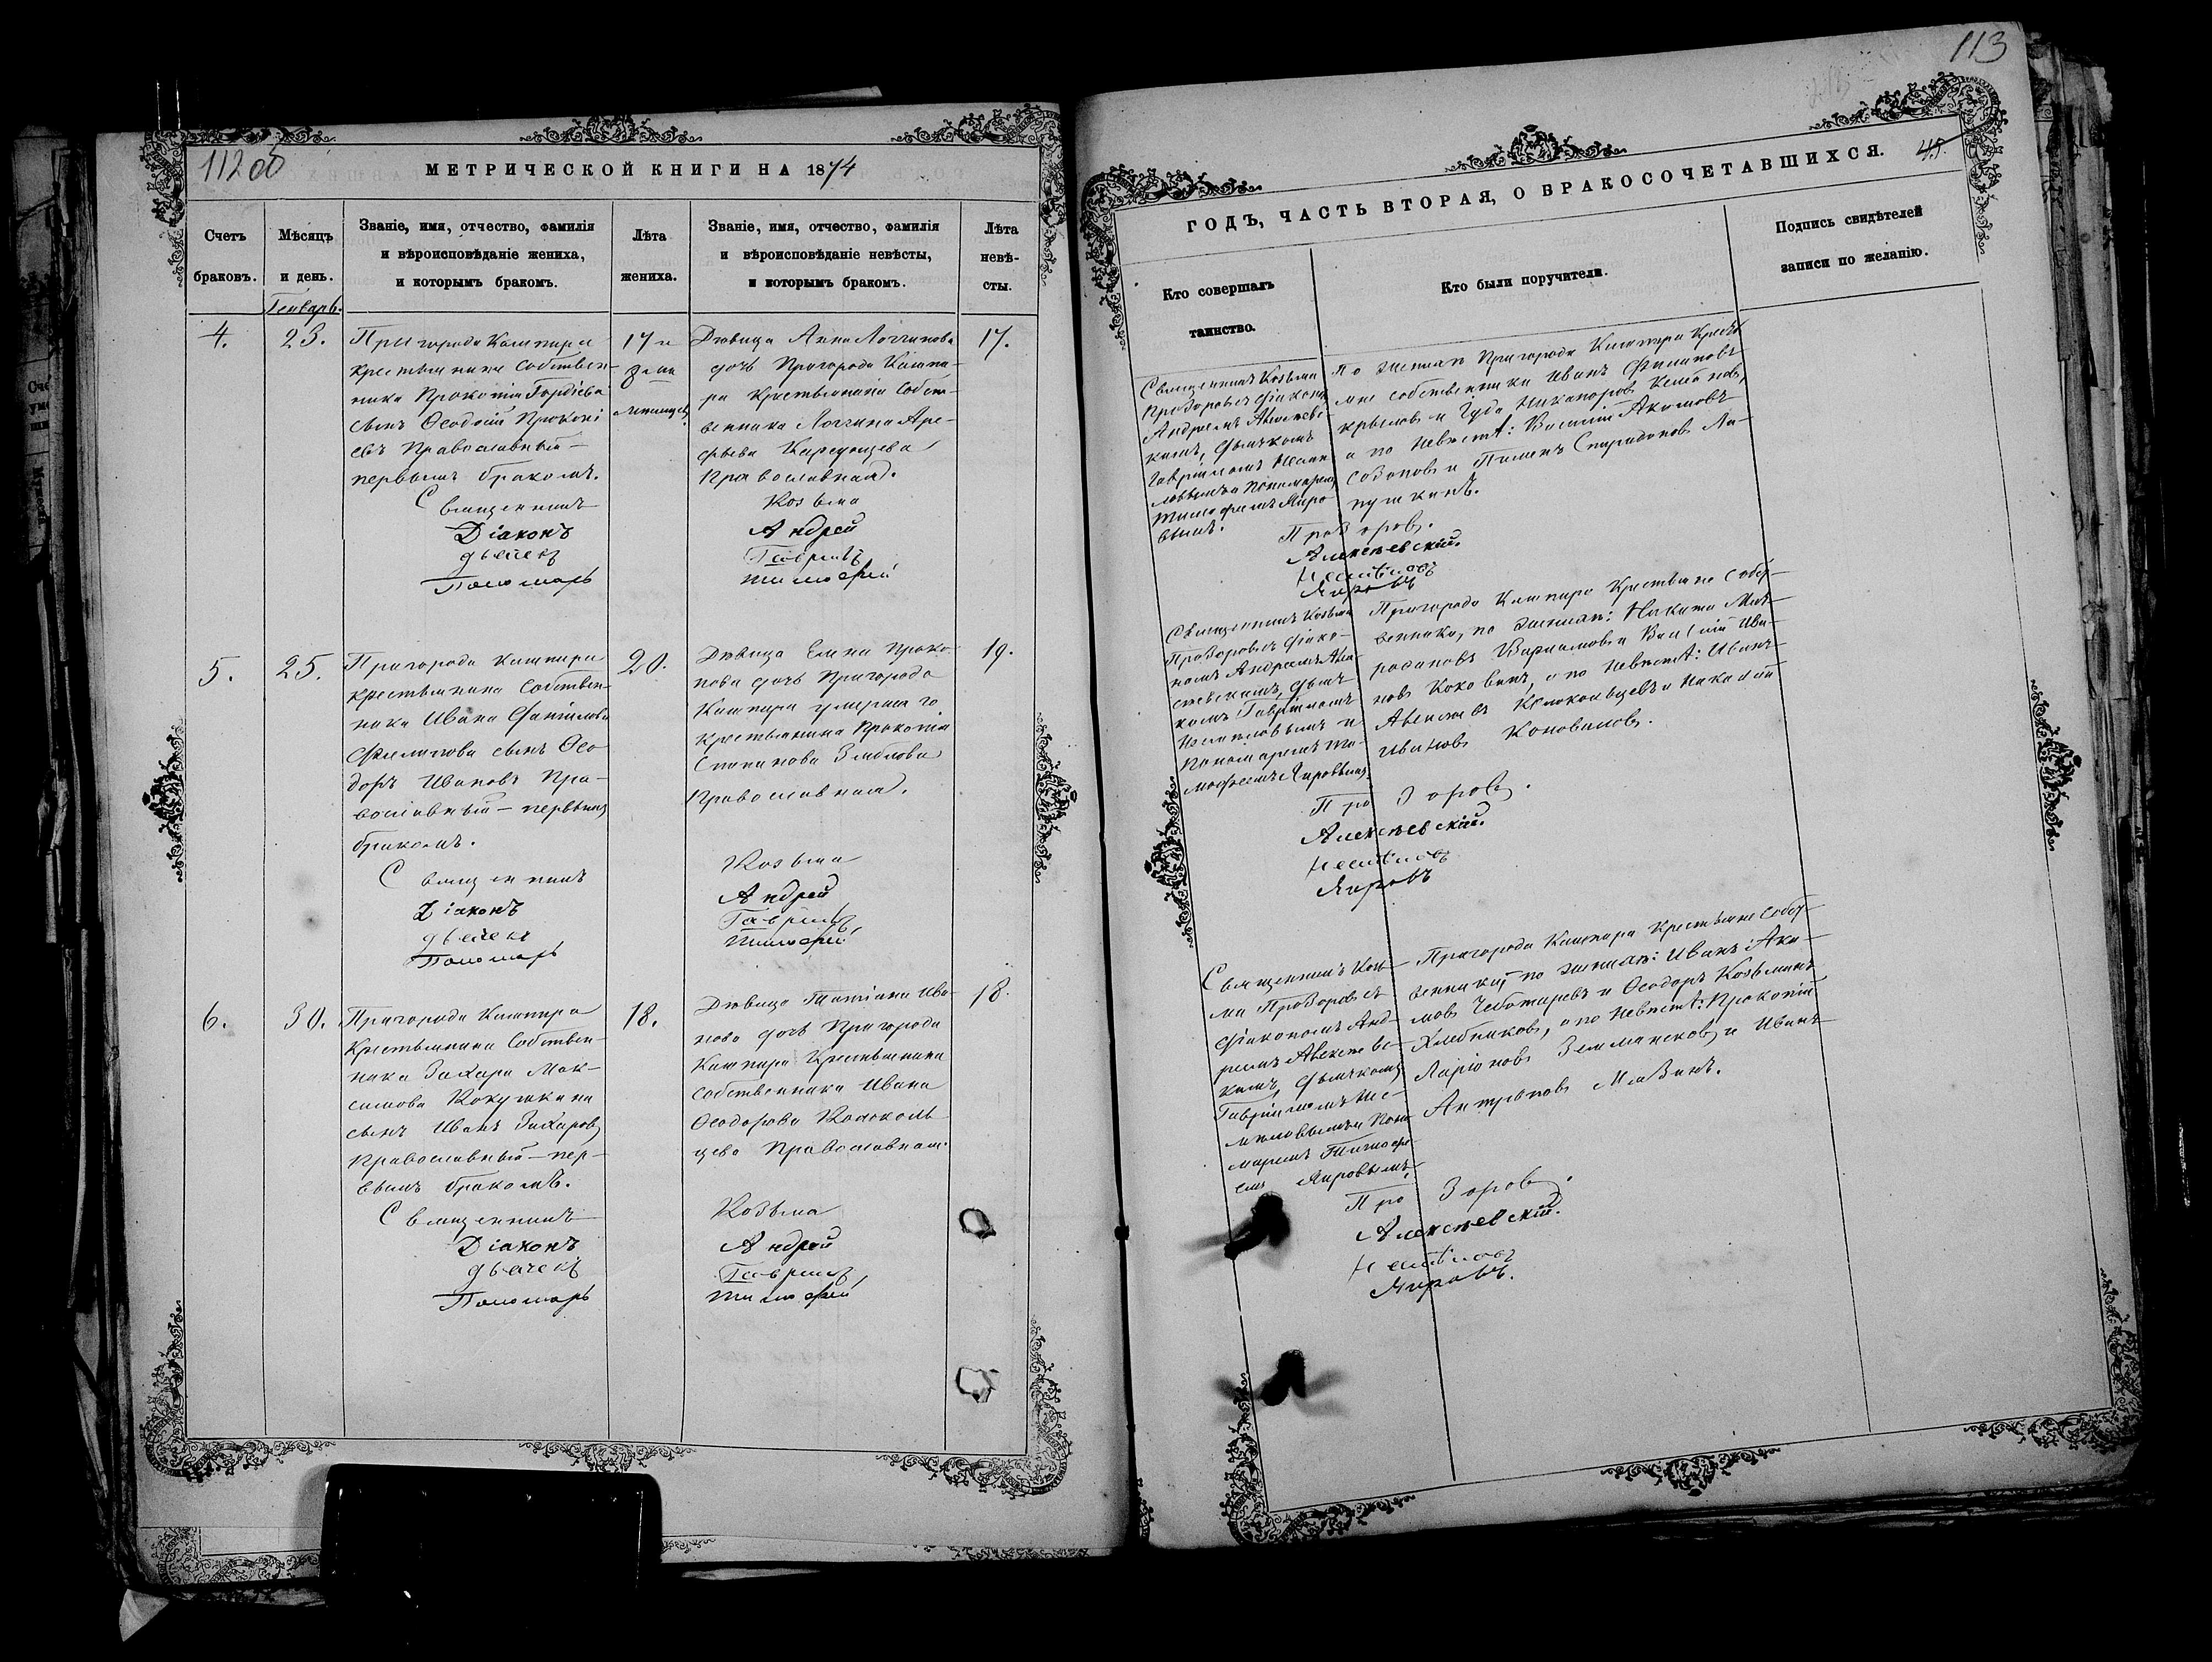 112 об
МЕТРИЧЕСКОЙ КНИГИ НА 1874
Счетъ браковъ.
Мѣсяцъ и день.
Званіе, имя, отчество, фамилія
и вѣроисповѣданіе жениха,
и которымъ бракомъ.
Лѣта жениха.
Званіе, имя, отчество, фамилія
и вѣроисповѣданіе невѣсты,
и которымъ бракомъ.
Лѣта невѣ-
сты.
Генварь.
4.
23.
Пригорода Кашпира
крестьянина собствен-
ника Прокопія Гордѣева
сынъ Ѳеодосій Прокопі
евъ Православный —
первымъ бракомъ.
Священникъ
Діаконъ
дьячекъ
Пономарь
17 и
мѣсяцевъ
Дѣвица Анна Логгинова
дочь Пригорода Кашпи-
ра Крестьянина Собст-
венника Логгина Аре-
фьева
Православная.
Козьма
Андрей
Гавріилъ
Тимофей
17.
5.
25.
Пригорода Кашпира
крестьянина Собствен-
ника Ивана
Филипова сынъ Ѳео-
доръ Ивановъ Пра-
вославный — первымъ
бракомъ.
Священникъ
Діаконъ
дьячекъ
Пономарь
20.
Дѣвица Елена Проко-
пова дочь Пригорода
Кашпира умершаго
крестьянина Прокопія
Степанова Зяблова
Православная.
Козьма
Андрей
Гавріилъ
Тимофей
19.
6.
30.
Пригорода Кашпира
Крестьянина Собствен-
ника Захара Мак-
симова Кокушкина
сынъ Иванъ Захаровъ
Православный — пер-
вымъ бракомъ.
Священникъ
Діаконъ
дьячекъ
Пономарь
18.
Дѣвица Татіана Ива-
нова дочь Пригорода
Кашпира Крестьянина
собственника Ивана
Ѳеодорова Колоколь
цева Православная.
Козьма
Андрей
Гавріилъ
Тимофей
18.
113
ГОДЪ, ЧАСТЬ ВТОРАЯ, О БРАКОСОЧЕТАВШИХСЯ.
Кто совершалъ таинство.
Кто были поручители.
Подпись свидѣтелей
записи по желанію.
Священникъ Козьма
Прозоровъ съ діакономъ
Андреемъ Алексѣевс-
кимъ, дьячкомъ
Гавріиломъ Несмѣ-
ловымъ и Пономаремъ
Тимофеемъ Яиро-
вымъ.
По женихѣ Пригорода Кашпира Кресть
яне собственники Иванъ Филиповъ
Крыловъ и Гуда Никаноровъ
а по невѣстѣ: Василій Акимовъ
Созоновъ и Пименъ Спиридоновъ Ла-
пушкинъ.
Прозоровъ.
Алексѣевскій.
Несмѣловъ
Яировъ
Священникъ Козьма
Прозоровъ съ діако-
номъ Андреемъ Алек-
сѣевскимъ, дьяч-
комъ Гавріиломъ
Несмѣловымъ и
Пономаремъ Ти-
мофеемъ Яировымъ
Пригорода Кашпира Крестьяне собст-
венники, по женихѣ: Никита Мит-
рофановъ Варламовъ и Василій Ива-
новъ Коковинъ, а по невѣстѣ: Иванъ
Алексѣевъ Колокольцевъ и Николай
Ивановъ Коноваловъ.
Прозоровъ.
Алексѣевскій.
Несмѣловъ
Яировъ
Священникъ Козь-
ма Прозоровъ съ
діакономъ Анд-
реемъ Алексѣевс-
кимъ, дьячкомъ
Гавріиломъ Нес-
мѣловымъ и Поно-
маремъ Тимофе-
емъ Яировымъ.
Пригорода Кашпира Крестьяне Собст-
венники, по женихѣ: Иванъ Аки-
мовъ Чеботаревъ и Ѳеодоръ Козьминъ
Хлебниковъ, а по невѣстѣ: Прокопій
Ларіоновъ Землянсковъ и Иванъ
Антиповъ Мязинъ.
Прозоровъ.
Алексѣевскій.
Несмѣловъ
Яировъ.